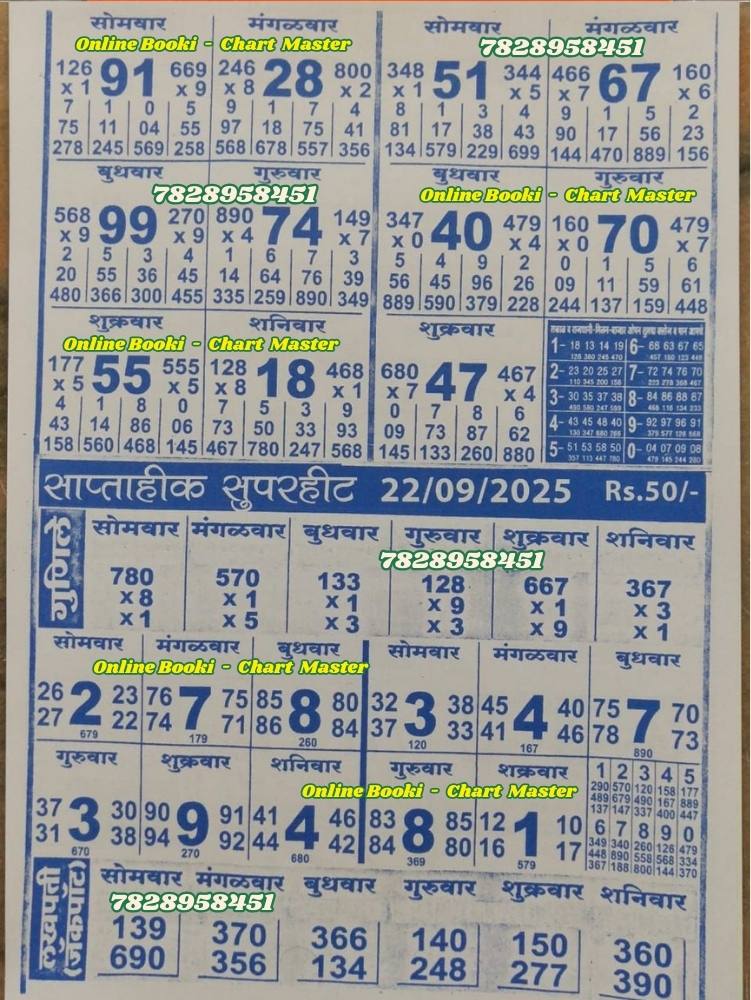 सोमवार मंगळवार सोमवार मंगळवार
Online Booki - Chart Master 7828958451
126 91 669 246 28 800 348 51 344 466 67 160
x 1 x 9 x 8 x 2 x 1 x 5 x 7 x 6
7 1 0 5 9 1 7 4 8 1 3 4 9 1 5 2
75 11 04 55 97 18 75 41 81 17 38 43 90 17 56 23
278 245 569 258 568 678 557 356 134 579 229 699 144 470 889 156
बुधवार गुरुवार बुधवार गुरुवार
7828958451 Online Booki - Chart Master
568 99 270 890 74 149 347 40 479 160 70 479
x 9 x 9 x 4 x 7 x 0 x 4 x 0 x 7
2 5 3 4 1 6 7 3 5 4 9 2 0 1 5 6
20 55 36 45 14 64 76 39 56 45 96 26 09 11 59 61
480 366 300 455 335 259 890 349 889 590 379 228 244 137 159 448
शुक्रवार शनिवार शुक्रवार
Online Booki - Chart Master
177 55 555 128 18 468 680 47 467
x 5 x 5 x 8 x 1 x 7 x 4
4 1 8 0 7 5 3 9 0 7 8 6
43 14 86 06 73 50 33 93 09 73 87 62
158 560 468 145 467 780 247 568 145 133 260 880
1- 18 13 14 19 6- 68 63 67 65
2- 23 20 25 27 7- 72 74 76 70
3- 30 35 37 38 8- 84 86 88 87
4- 43 45 48 40 9- 92 97 96 91
5- 51 53 58 50 0- 04 07 09 08
साप्ताहीक सुपरहीट 22/09/2025 Rs.50/-
गुणिले
सोमवार मंगळवार बुधवार गुरुवार शुक्रवार शनिवार
7828958451
780 570 133 128 667 367
x 8 x 1 x 1 x 9 x 1 x 3
x 1 x 5 x 3 x 3 x 9 x 1
सोमवार मंगळवार बुधवार सोमवार मंगळवार बुधवार
Online Booki - Chart Master
26 2 23 76 7 75 85 8 80 32 3 38 45 4 40 75 7 70
27 22 74 71 86 84 37 33 41 46 78 73
679 179 260 120 167 890
गुरुवार शुक्रवार शनिवार गुरुवार शक्रवार
Online Booki - Chart Master
37 3 30 90 9 91 41 4 46 83 8 85 12 1 10
31 38 94 92 44 42 84 80 16 17
670 270 680 369 579
1 2 3 4 5
290 570 120 158 177
489 679 490 167 889
137 147 337 400 447
6 7 8 9 0
349 340 260 126 479
448 890 558 568 334
367 188 800 144 370
लखपती
(जॅकपॉट)
सोमवार मंगळवार बुधवार गुरुवार शुक्रवार शनिवार
7828958451
139 370 366 140 150 360
690 356 134 248 277 390